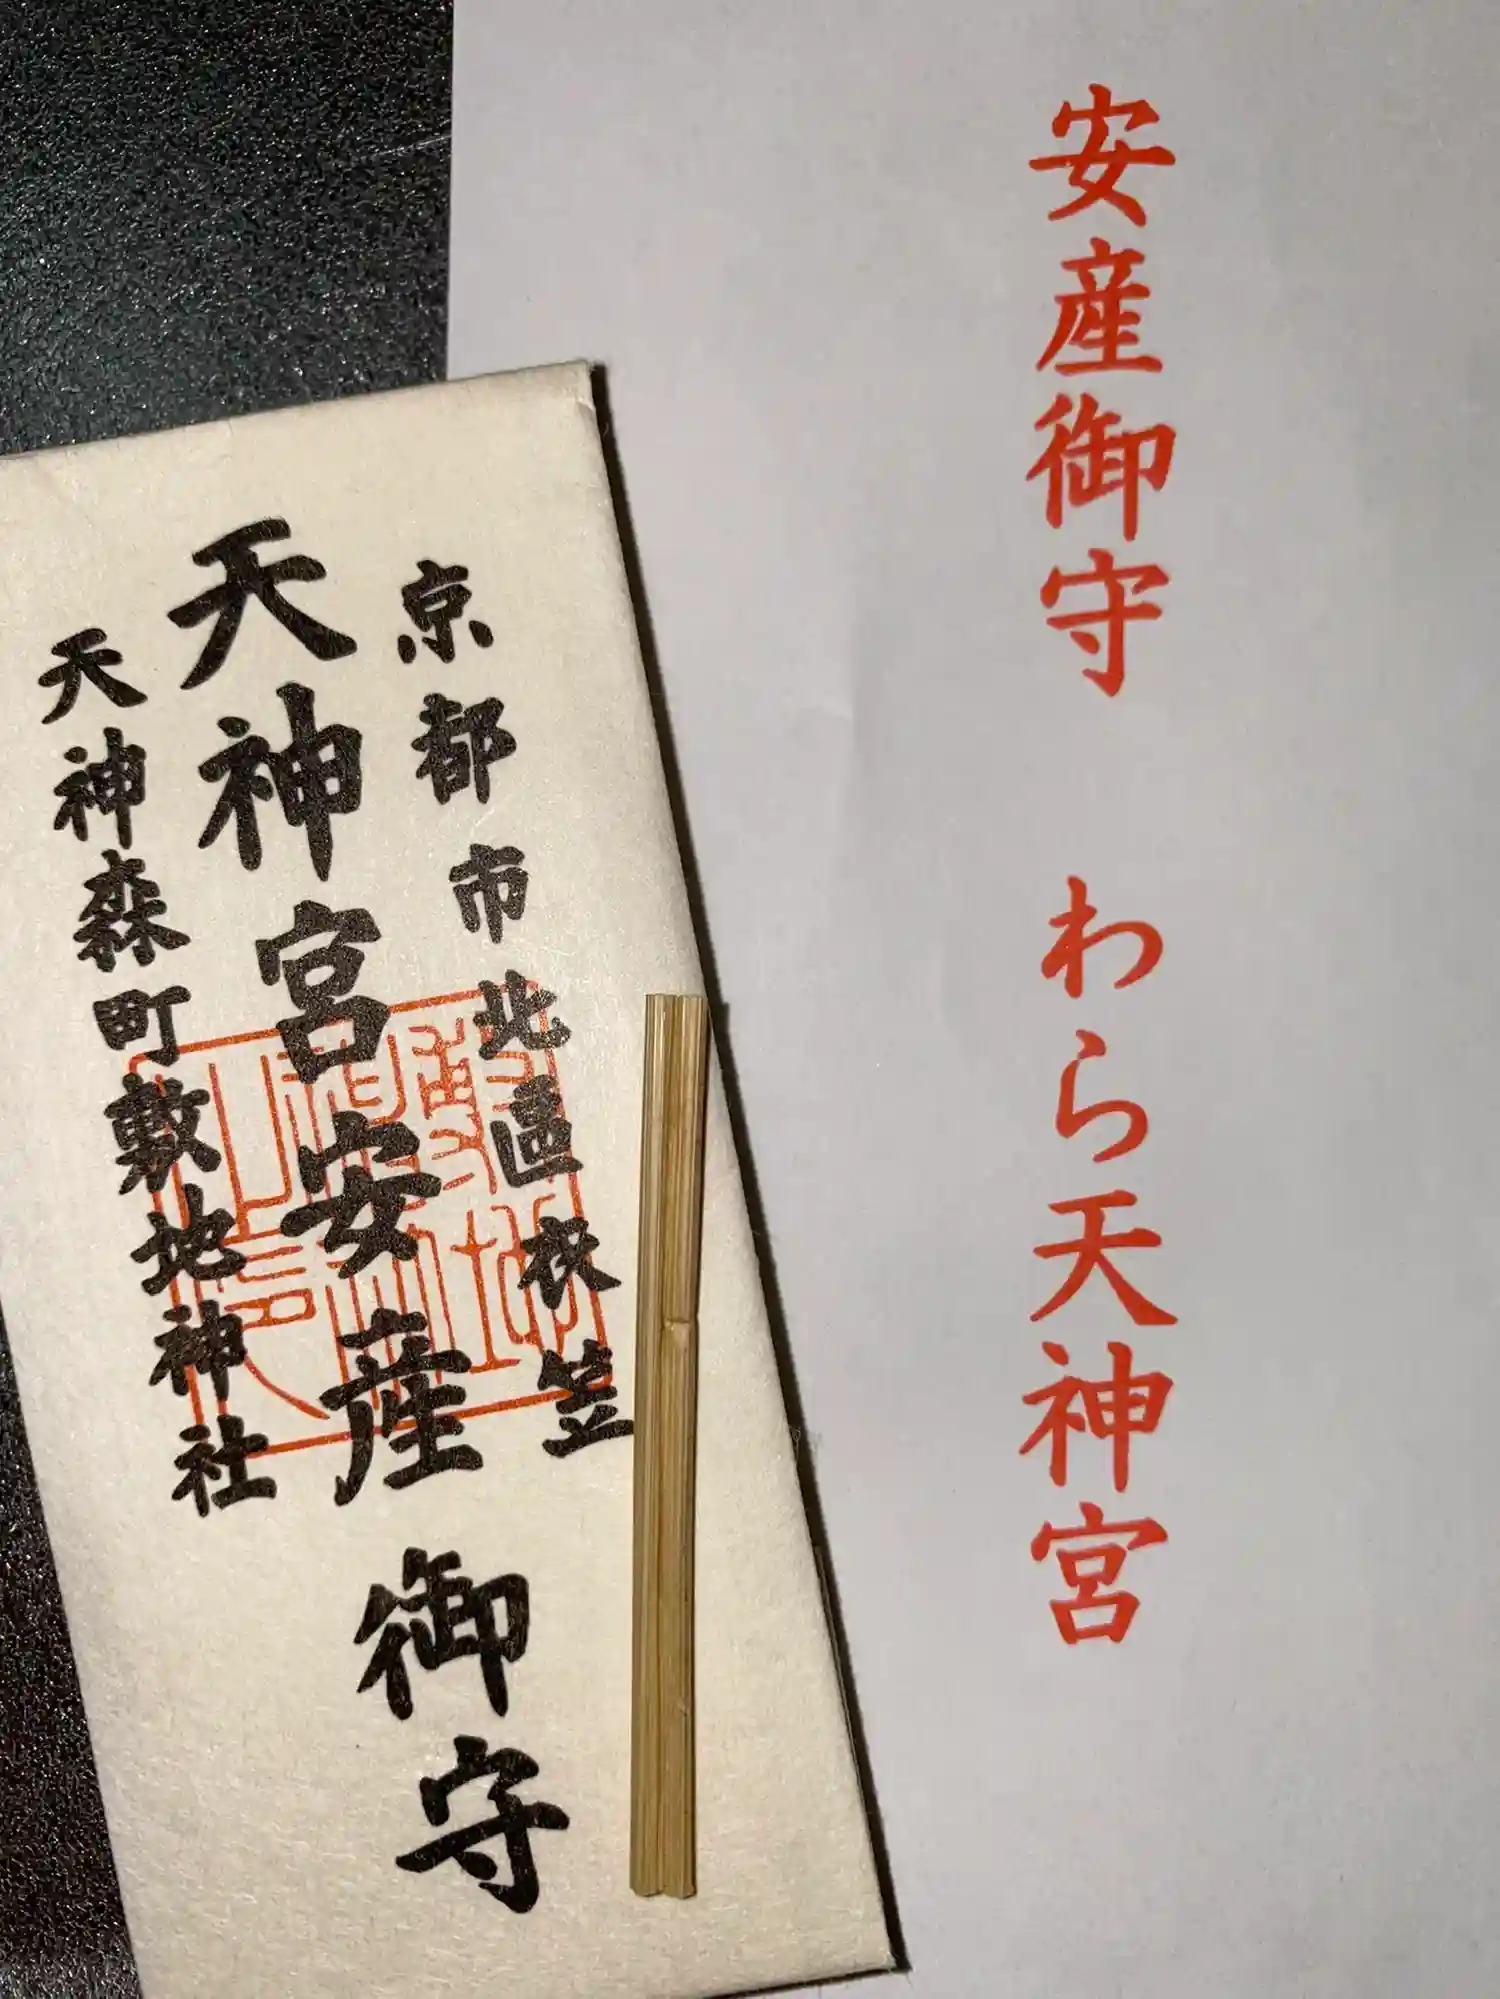 安産御守 わら天神宮
京都市北區衣笠
天神宮安産御守
天神森町敷地神社